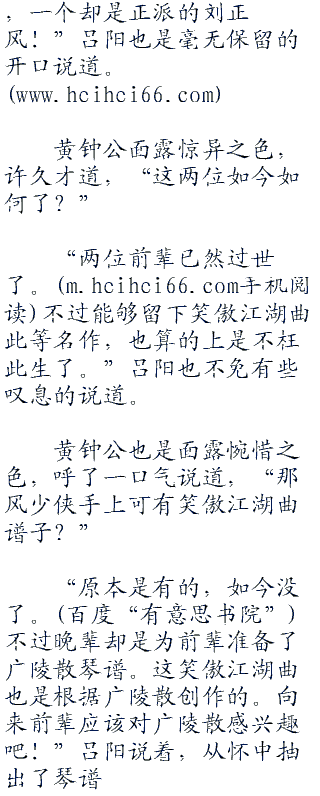 ，一个却是正派的刘正
风！”吕阳也是毫无保留的
开口说道。
(www.hcihci66.com)
黄钟公面露惊异之色，
许久才道，“这两位如今如
何了？”
“两位前辈已然过世
了。(m.hcihci66.com手机阅
读)不过能够留下笑傲江湖曲
此等名作，也算的上是不枉
此生了。”吕阳也不免有些
叹息的说道。
黄钟公也是面露惋惜之
色，呼了一口气说道，“那
风少侠手上可有笑傲江湖曲
谱子？”
“原本是有的，如今没
了。(百度“有意思书院”)
不过晚辈却是为前辈准备了
广陵散琴谱。这笑傲江湖曲
也是根据广陵散创作的。向
来前辈应该对广陵散感兴趣
吧！”吕阳说着，从怀中抽
出了琴谱